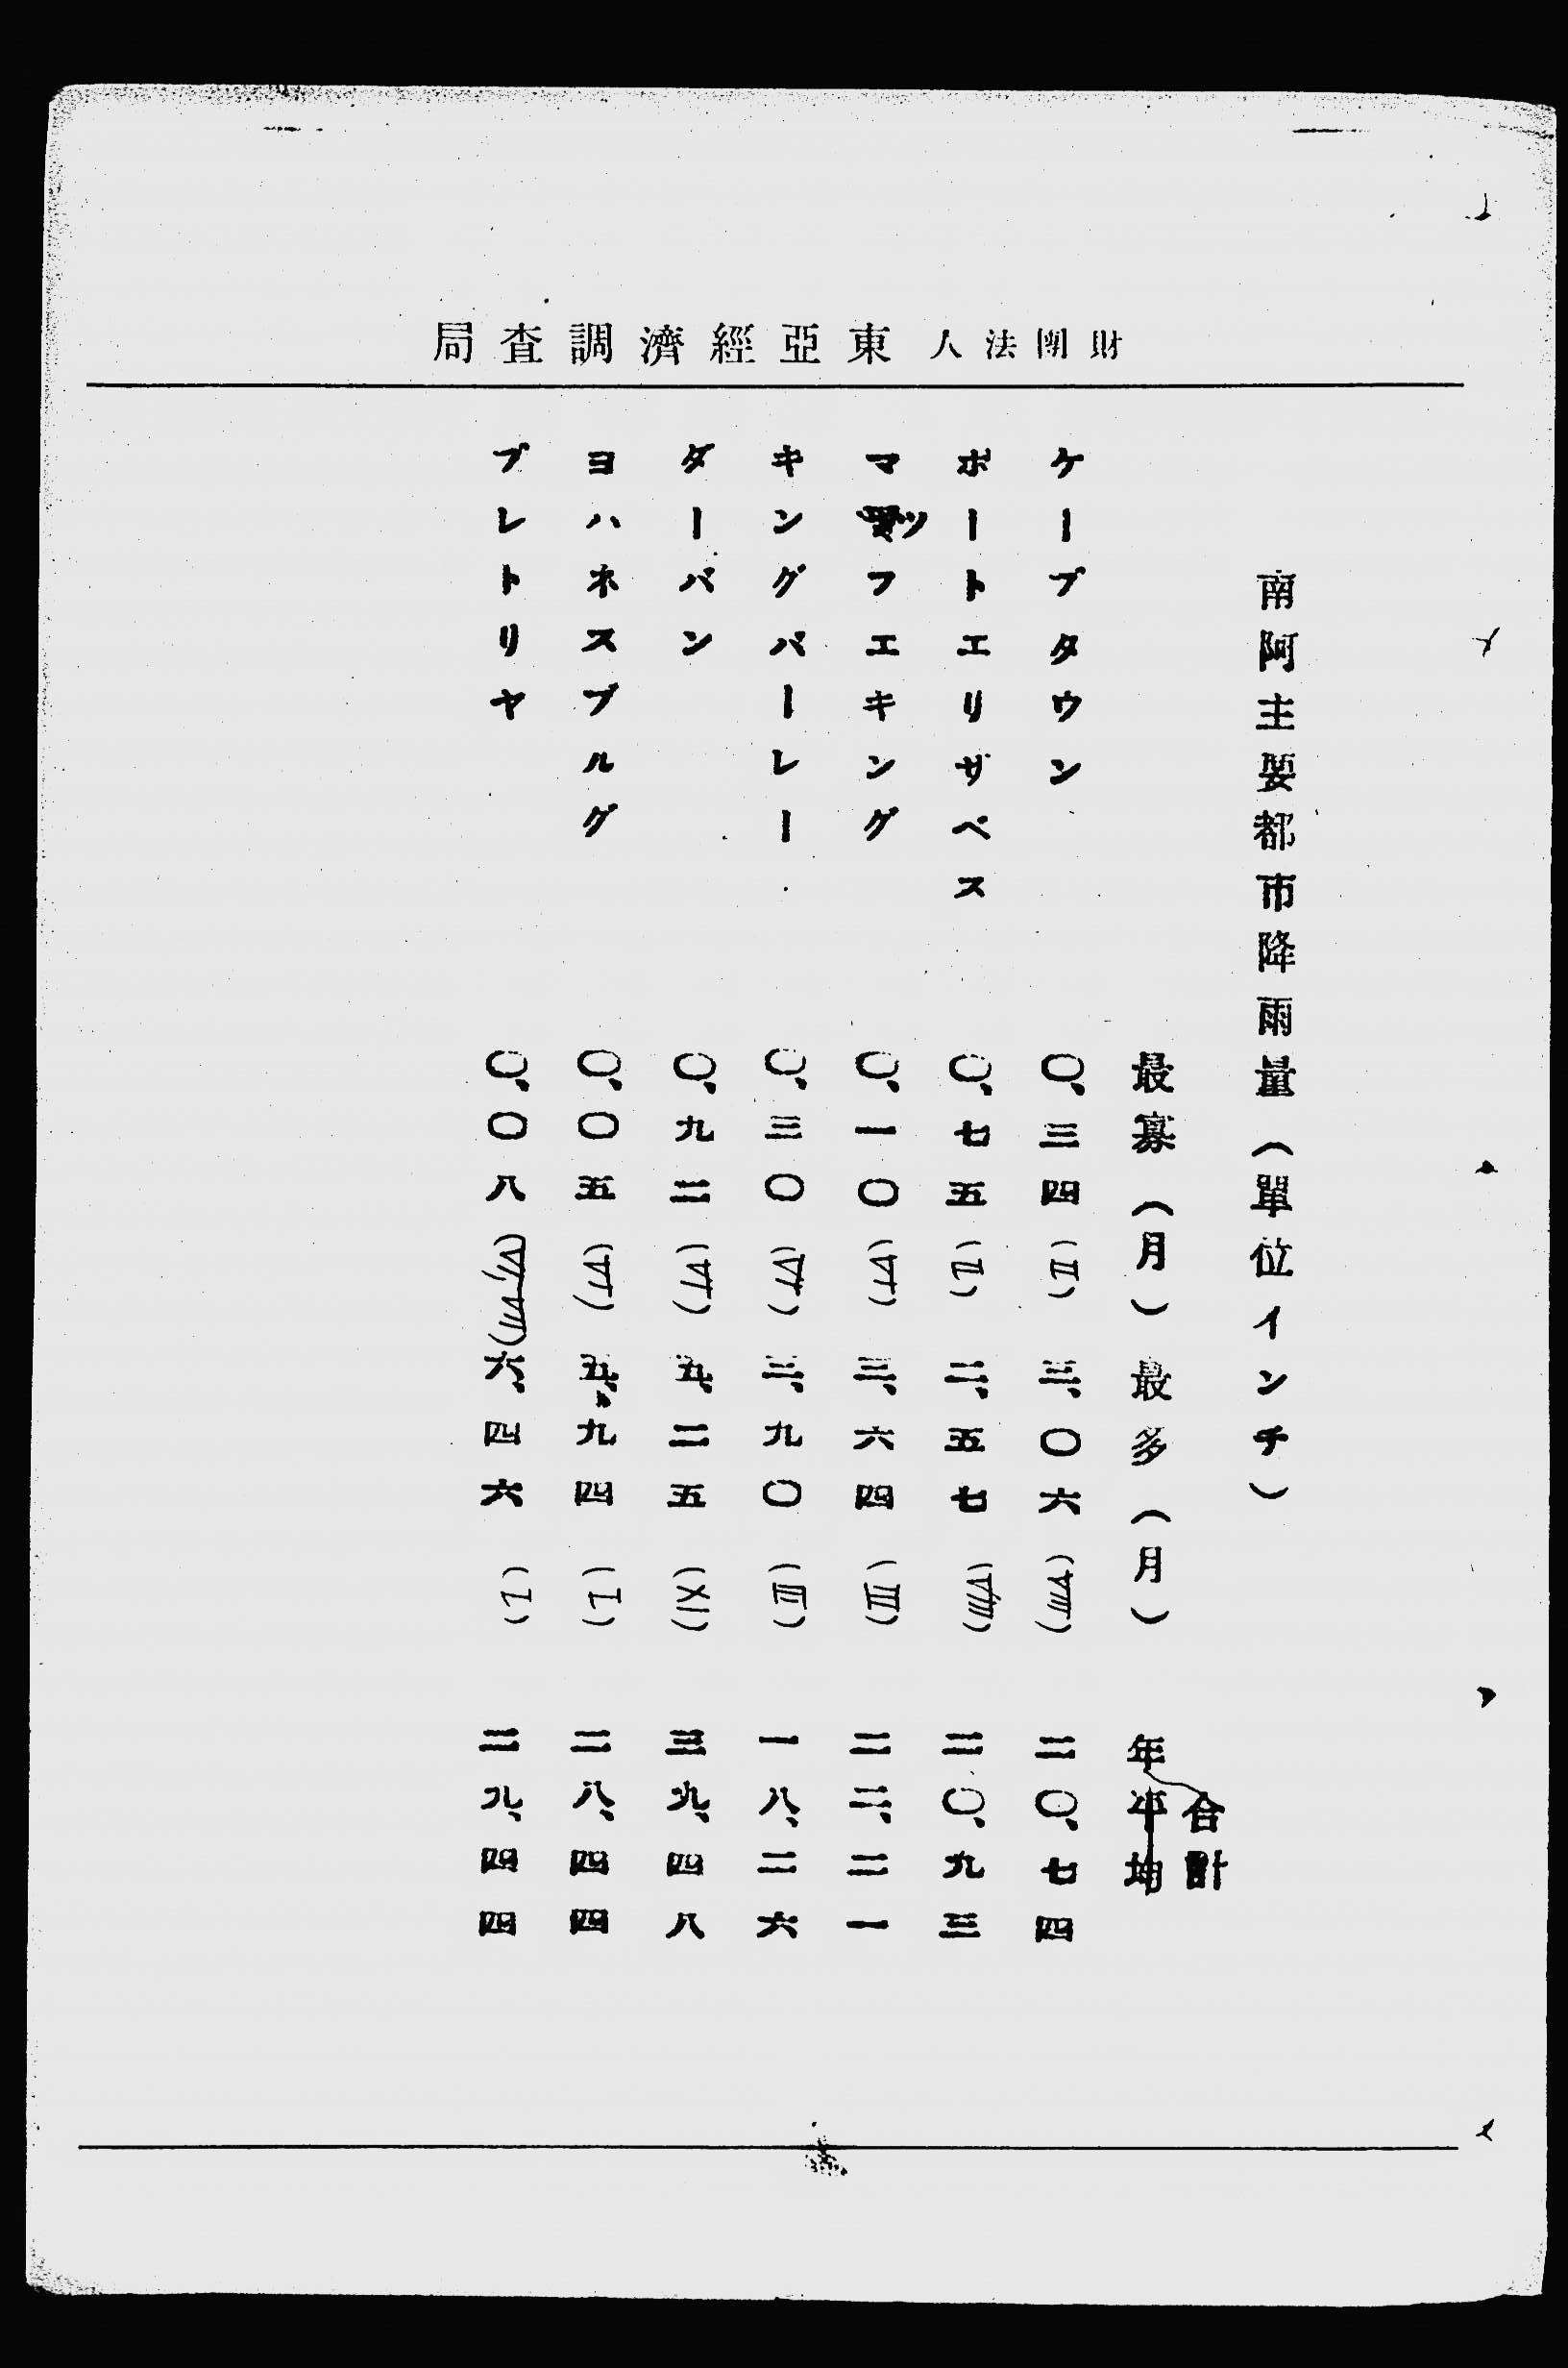 財團法人東亞經濟調査局
南阿主要都市降雨量(單位インチ)
最寡(月)最多(月) 年合計
ケープタウン 〇、三四(II) 三、〇六(VIII) 二〇、七四
ポートエリザベス 〇、七五(I) 二、五七(VIII) 二〇、九三
マッフエキング 〇、一〇(VI) 三、六四(III) 二二、二一
キングバーレー 〇、三〇(VI) 三、九〇(III) 一八、二六
ダーバン 〇、九二(VI) 五、二五(XII) 三九、四八
ヨハネスブルグ 〇、〇五(VI) 五、九四(I) 二八、四四
プレトリヤ 〇、〇八 六、四六(I) 二九、四四